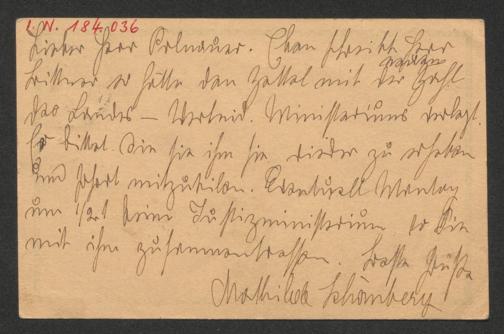 I. N. 184.036
Lieber Herr Polnauer. Eben schreibt Herr
er hätte den Zettel mit der Zahl
des Landes – Verteid. Ministeriums verlegt.
Er bittet Sie sie ihm sie wieder zu erheben
und sofort mitzuteilen. Eventuell Montag
um 1/2 1 beim Justizministerium wo Sie
mit ihm zusammentreffen. Beste Grüße
Mathilde Schönberg